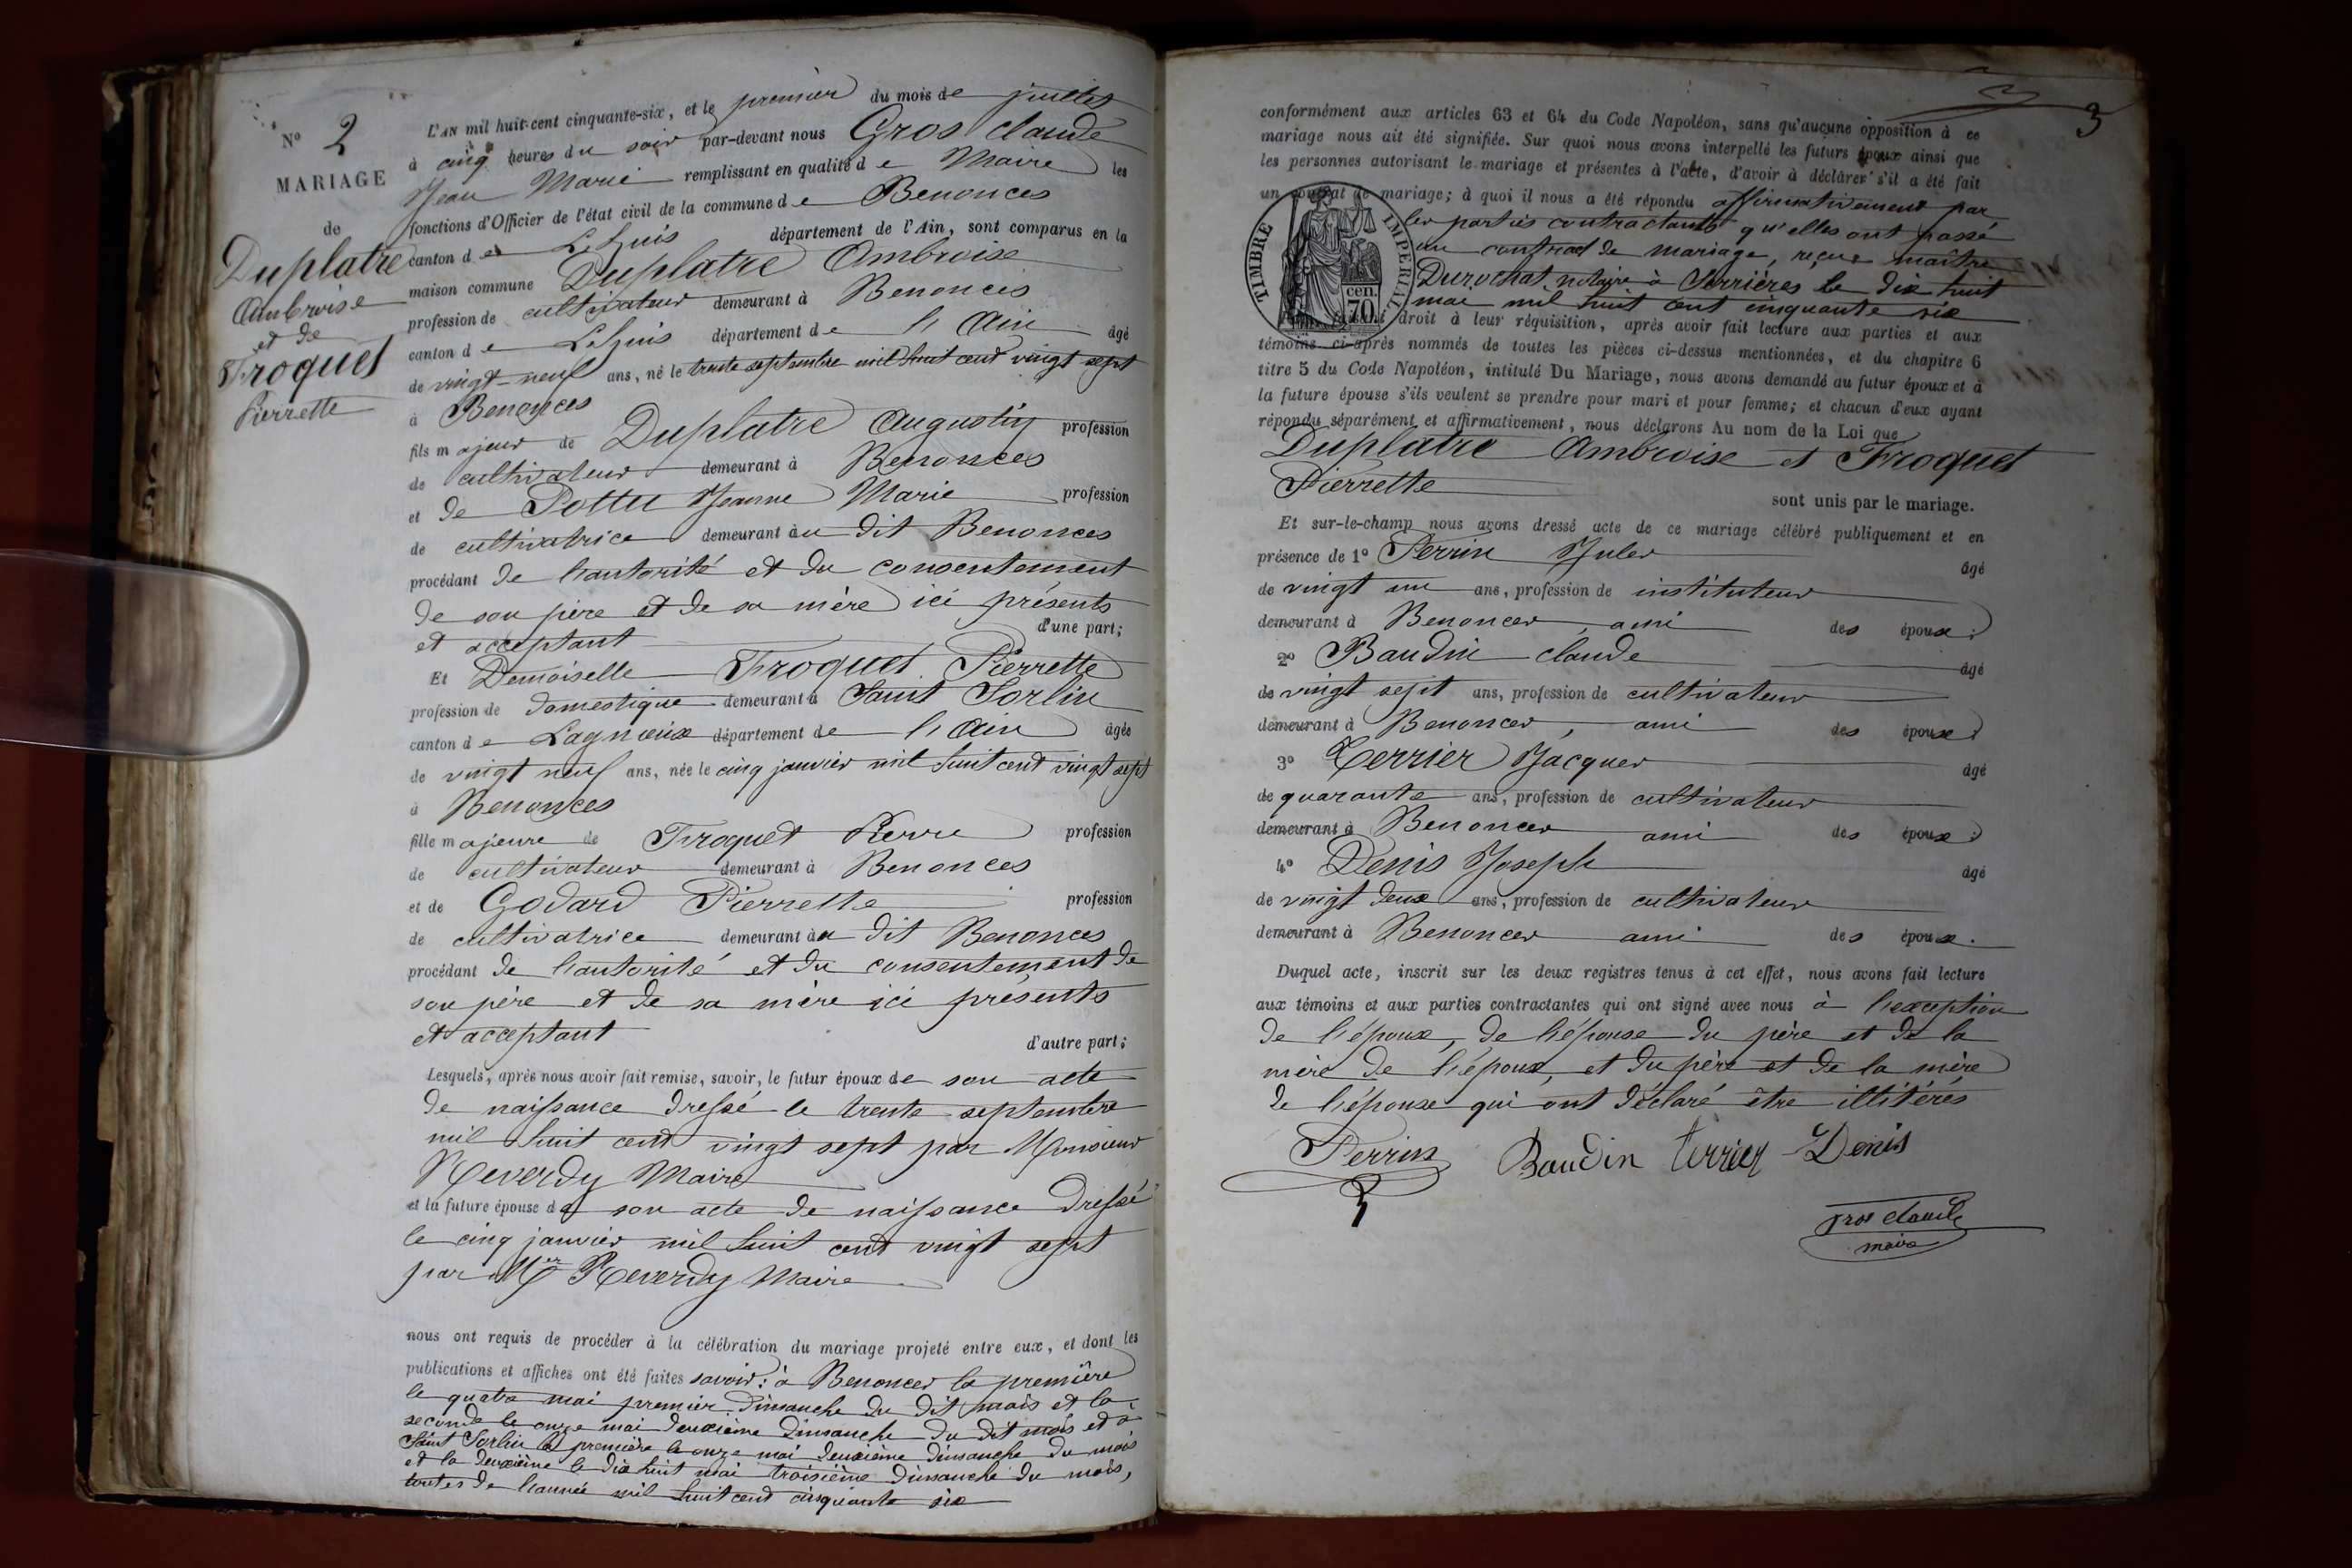 N° 2
MARIAGE
de
Duplatre
Ambroise
et de
Froquet
Pierrette
L'AN mil huit-cent cinquante-six, et le premier du mois de juillet
à cinq heures du soir par-devant nous Gros Claude
Jean Marie remplissant en qualité de Maire les
fonctions d'Officier de l'état civil de la commune de Benonces
canton de Lhuis département de l'Ain, sont comparus en la
maison commune Duplatre Ambroise
profession de cultivateur demeurant à Benonces
canton de Lhuis département de l'Ain âgé
de vingt-neuf ans, né le trente septembre mil huit cent vingt sept
à Benonces
fils majeur de Duplatre Augustin profession
de cultivateur demeurant à Benonces
et de Pottu Jeanne Marie profession
de cultivatrice demeurant au dit Benonces
procédant de l'autorité et du consentement
de son père et de sa mère ici présents
et acceptant d'une part;
Et Demoiselle Froquet Pierrette
profession de domestique demeurant à Saint Sorlin
canton de Lagnieux département de l'Ain âgée
de vingt neuf ans, née le cinq janvier mil huit cent vingt sept
à Benonces
fille majeure de Froquet Pierre profession
de cultivateur demeurant à Benonces
et de Godard Pierrette profession
de cultivatrice demeurant au dit Benonces
procédant de l'autorité et du consentement de
son père et de sa mère ici présents
et acceptant d'autre part;
Lesquels, après nous avoir fait remise, savoir, le futur époux de son acte
de naissance dressé le trente septembre
mil huit cent vingt sept par Monsieur
Reverdy Maire
et la future épouse de son acte de naissance dressé
le cinq janvier mil huit cent vingt sept
par Mr Reverdy Maire
nous ont requis de procéder à la célébration du mariage projeté entre eux, et dont les
publications et affiches ont été faites savoir: à Benonces la première
le quatre mai premier dimanche du dit mois et la
seconde le onze mai deuxième dimanche du dit mois et à
Saint Sorlin la première le onze mai deuxième dimanche du mois
et la deuxième le dix huit mai troisième dimanche du mois,
toutes de l'année mil huit cent cinquante six
3
conformément aux articles 63 et 64 du Code Napoléon, sans qu'aucune opposition à ce
mariage nous ait été signifiée. Sur quoi nous avons interpellé les futurs époux ainsi que
les personnes autorisant le mariage et présentes à l'acte, d'avoir à déclarer s'il a été fait
un contrat de mariage; à quoi il nous a été répondu affirmativement par
les parties contractants qu'elles ont passé
un contrat de mariage, reçu maître
Durochat, notaire à Serrières le dix huit
mai mil huit cent cinquante six
TIMBRE IMPERIAL
cen.
70
droit à leur réquisition, après avoir fait lecture aux parties et aux
témoins ci-après nommés de toutes les pièces ci-dessus mentionnées, et du chapitre 6
titre 5 du Code Napoléon, intitulé Du Mariage, nous avons demandé au futur époux et à
la future épouse s'ils veulent se prendre pour mari et pour femme; et chacun d'eux ayant
répondu séparément et affirmativement, nous déclarons Au nom de la Loi que
Duplatre Ambroise et Froquet
Pierrette
sont unis par le mariage.
Et sur-le-champ nous avons dressé acte de ce mariage célébré publiquement et en
présence de 1° Perrin Jules âgé
de vingt un ans, profession de instituteur
demeurant à Benonces, ami des époux;
2° Baudin Claude âgé
de vingt sept ans, profession de cultivateur
demeurant à Benonces, ami des époux;
3° Terrier Jacques âgé
de quarante ans, profession de cultivateur
demeurant à Benonces ami des époux;
4° Denis Joseph âgé
de vingt deux ans, profession de cultivateur
demeurant à Benonces ami des époux.
Duquel acte, inscrit sur les deux registres tenus à cet effet, nous avons fait lecture
aux témoins et aux parties contractantes qui ont signé avec nous à l'exception
de l'époux, de l'épouse du père et de la
mère de l'époux, et du père et de la mère
de l'épouse qui ont déclaré être illitérés
Perrin Baudin terrier Denis
gros claude
maire